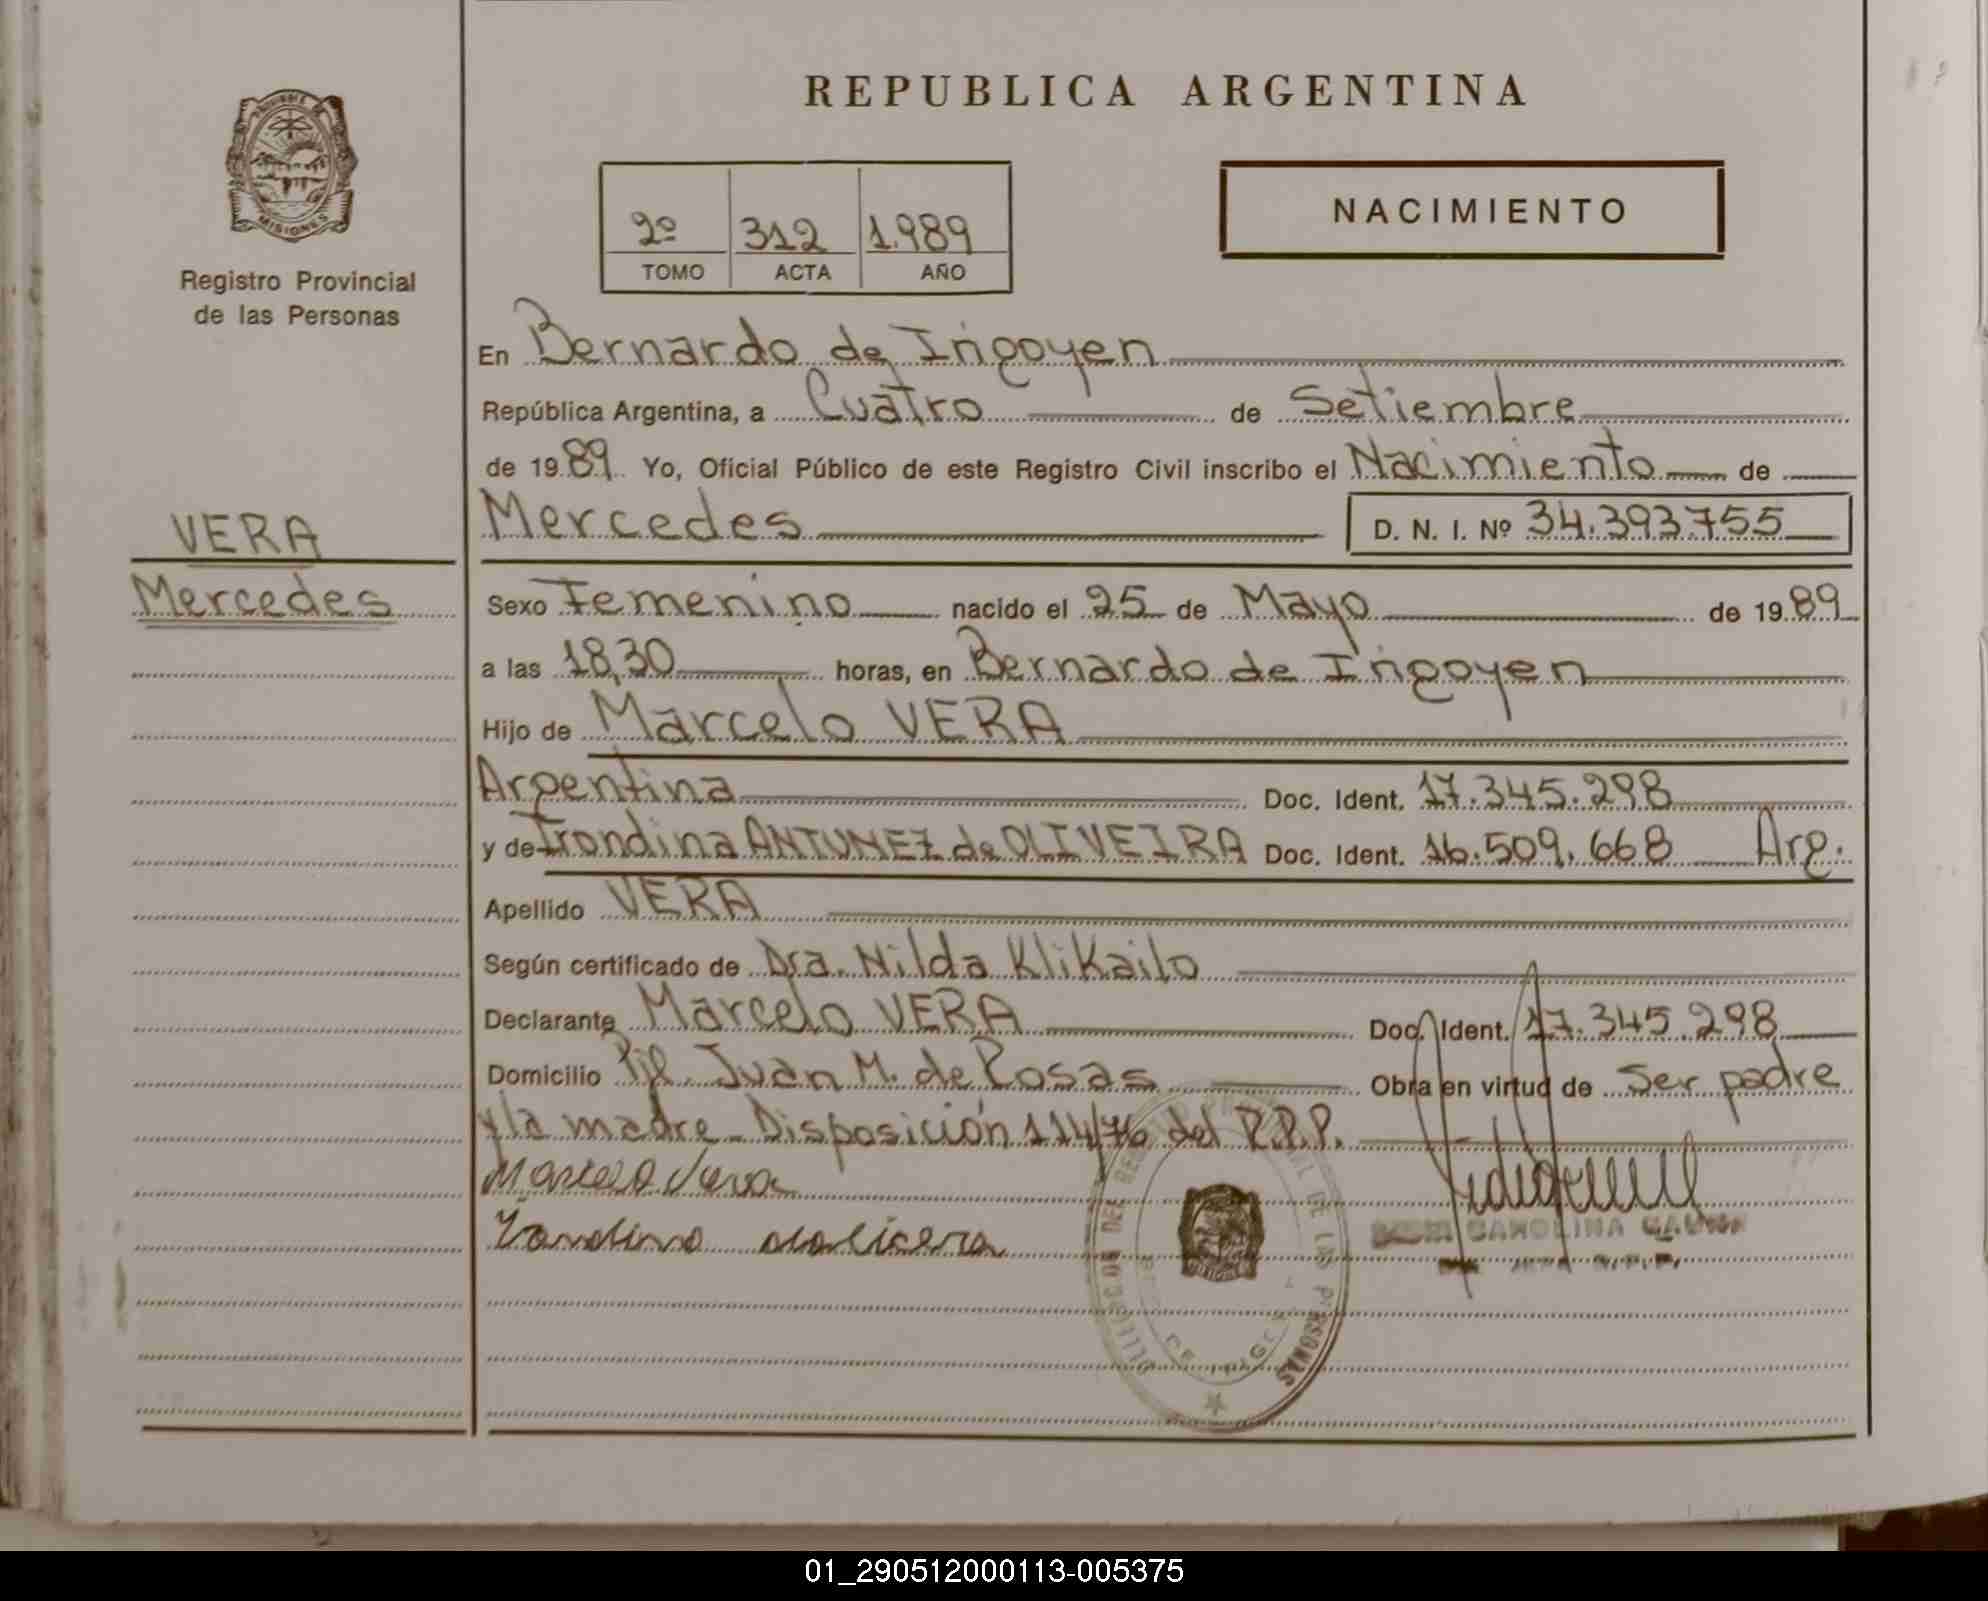 REPUBLICA ARGENTINA
MISIONES
Registro Provincial
de las Personas
2º 312 1.989
TOMO ACTA AÑO
NACIMIENTO
En Bernardo de Irigoyen
República Argentina, a Cuatro de Setiembre
de 19 89 Yo, Oficial Público de este Registro Civil inscribo el Nacimiento de
VERA
Mercedes D. N. I. Nº 34.393.755
Mercedes
Sexo Femenino nacido el 25 de Mayo de 19 89
a las 18,30 horas, en Bernardo de Irigoyen
Hijo de Marcelo VERA
Argentina Doc. Ident. 17.345.298
y de Irondina ANTUNEZ de OLIVEIRA Doc. Ident. 16.509.668 Arg.
Apellido VERA
Según certificado de Dra. Nilda Klikailo
Declarante Marcelo VERA Doc. Ident. 17.345.298
Domicilio Pje. Juan M. de Rosas Obra en virtud de Ser padre
y la madre - Disposición 114/76 del R.P.P.
Marcelo Vera
CAROLINA
DEL DE LAS PERSONAS
01_290512000113-005375